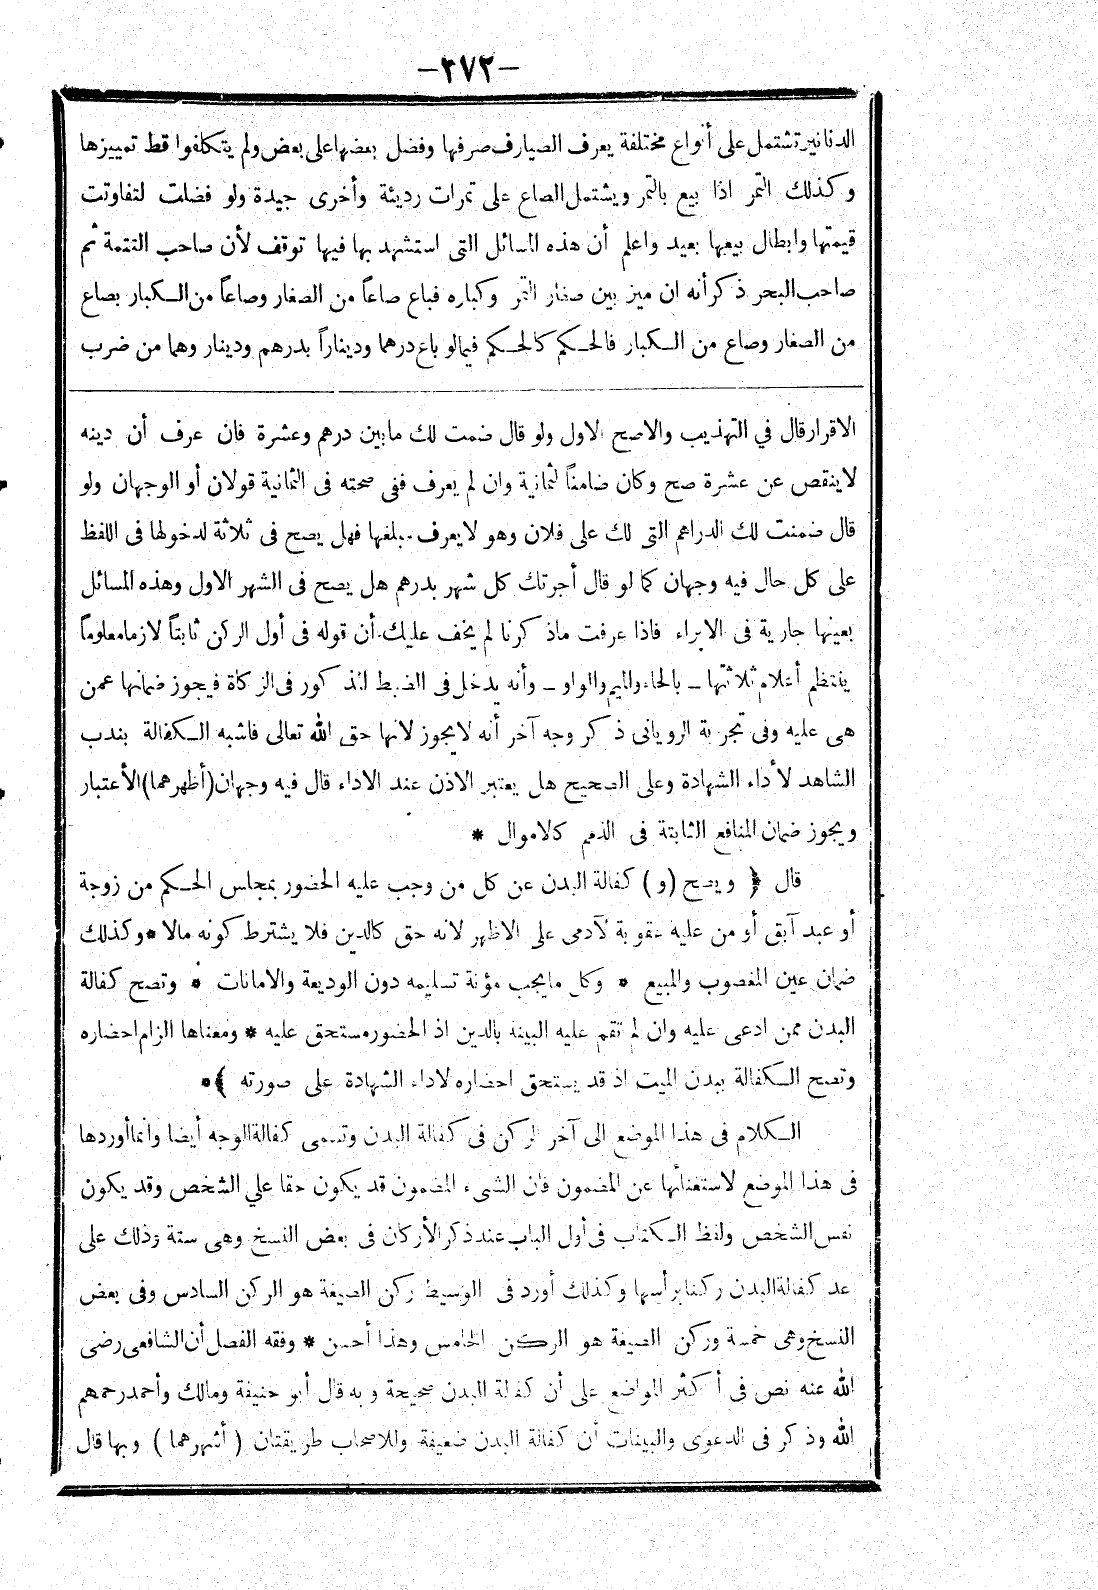 -٣٧٢-
الدنانير تشتمل على أنواع مختلفة يعرف الصيارف صرفها وفضل بعضها على بعض ولم يتكلفوا قط تمييزها
وكذلك التمر اذا بيع بالتمر ويشتمل الصاع على تمرات رديئة وأخرى جيدة ولو فضلت لتفاوتت
قيمتها وابطال بيعها بعيد واعلم أن هذه المسائل التى استشهد بها فيها توقف لأن صاحب التتمة ثم
صاحب البحر ذكر أنه ان ميز بين صغار التمر وكباره فباع صاعاً من الصغار وصاعاً من الكبار بصاع
من الصغار وصاع من الكبار فالحكم كالحكم فيما لو باع درهما وديناراً بدرهم ودينار وهما من ضرب
الاقرار قال في التهذيب والاصح الاول ولو قال ضمت لك مابين درهم وعشرة فان عرف أن دينه
لاينقص عن عشرة صح وكان ضامناً لثمانية وان لم يعرف ففى صحته فى الثمانية قولان أو الوجهان ولو
قال ضمنت لك الدراهم التى لك على فلان وهو لايعرف مبلغها فهل يصح فى ثلاثة لدخولها فى اللفظ
على كل حال فيه وجهان كما لو قال أجرتك كل شهر بدرهم هل يصح فى الشهر الاول وهذه المسائل
بعينها جارية فى الابراء فاذا عرفت ماذكرنا لم يخف عليك أن قوله فى أول الركن ثابتاً لازما معلوماً
ينتظم أعلام ثلاثتها ــ بالحاء والميم والواو ــ وأنه يدخل فى الضبط المذكور فى الزكاة فيجوز ضمانها عمن
هى عليه وفى تجربة الرويانى ذكر وجه آخر أنه لايجوز لانها حق الله تعالى فاشبه الكفالة ببدن
الشاهد لأداء الشهادة وعلى الصحيح هل يعتبر الاذن عند الاداء قال فيه وجهان (أظهرهما) الأعتبار
ويجوز ضمان المنافع الثابتة فى الذمم كالاموال *
قال ﴿ ويصح (و) كفالة البدن عن كل من وجب عليه الحضور بمجلس الحكم من زوجة
أو عبد آبق أو من عليه عقوبة لآدمى على الاظهر لانه حق كالدين فلا يشترط كونه مالا * وكذلك
ضمان عين المغصوب والمبيع * وكل مايجب مؤنة تسليمه دون الوديعة والامانات * وتصح كفالة
البدن ممن ادعى عليه وان لم تقم عليه البينة بالدين اذ الحضور مستحق عليه * ومعناها الزام احضاره
وتصح الكفالة ببدن الميت اذ قد يستحق احضاره لاداء الشهادة على صورته ﴾*
الكلام فى هذا الموضع الى آخر الركن فى كفالة البدن وتسمى كفالة الوجه أيضا وانما أوردها
فى هذا الموضع لاستغنائها عن المضمون فان الشىء المضمون قد يكون حقا علي الشخص وقد يكون
نفس الشخص ولفظ الكتاب فى أول الباب عند ذكر الأركان فى بعض النسخ وهى ستة وذلك على
عد كفالة البدن ركنا برأسها وكذلك أورد فى الوسيط ركن الصيغة هو الركن السادس وفى بعض
النسخ وهى خمسة وركن الصيغة هو الركن الخامس وهذا أحسن * وفقه الفصل أن الشافعى رضى
الله عنه نص فى أكثر المواضع على أن كفالة البدن صحيحة وبه قال أبو حنيفة ومالك وأحمد رحمهم
الله وذكر فى الدعوى والبينات أن كفالة البدن ضعيفة وللاصحاب طريقتان (أشهرهما) وبها قال